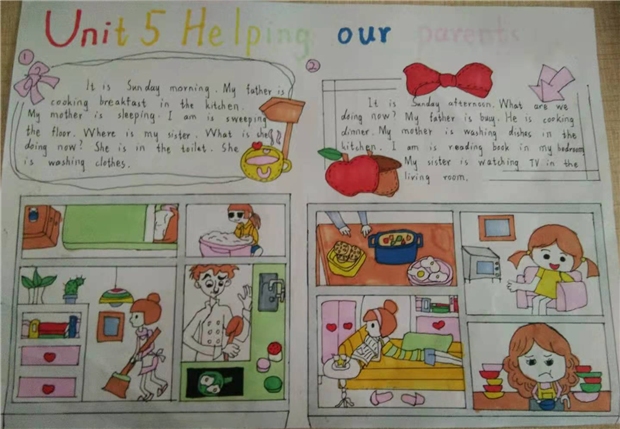 Unit 5 Helping our parents
1
It is Sunday morning. My father is
cooking breakfast in the kitchen.
My mother is sleeping. I am is sweeping
the floor. Where is my sister. What is she
doing now? She is in the toilet. She
is washing clothes.
2
It is Sunday afternoon. What are we
doing now? My father is busy. He is cooking
dinner. My mother is washing dishes in the
kitchen. I am is reading book in my bedroom
My sister is watching TV in the
living room.